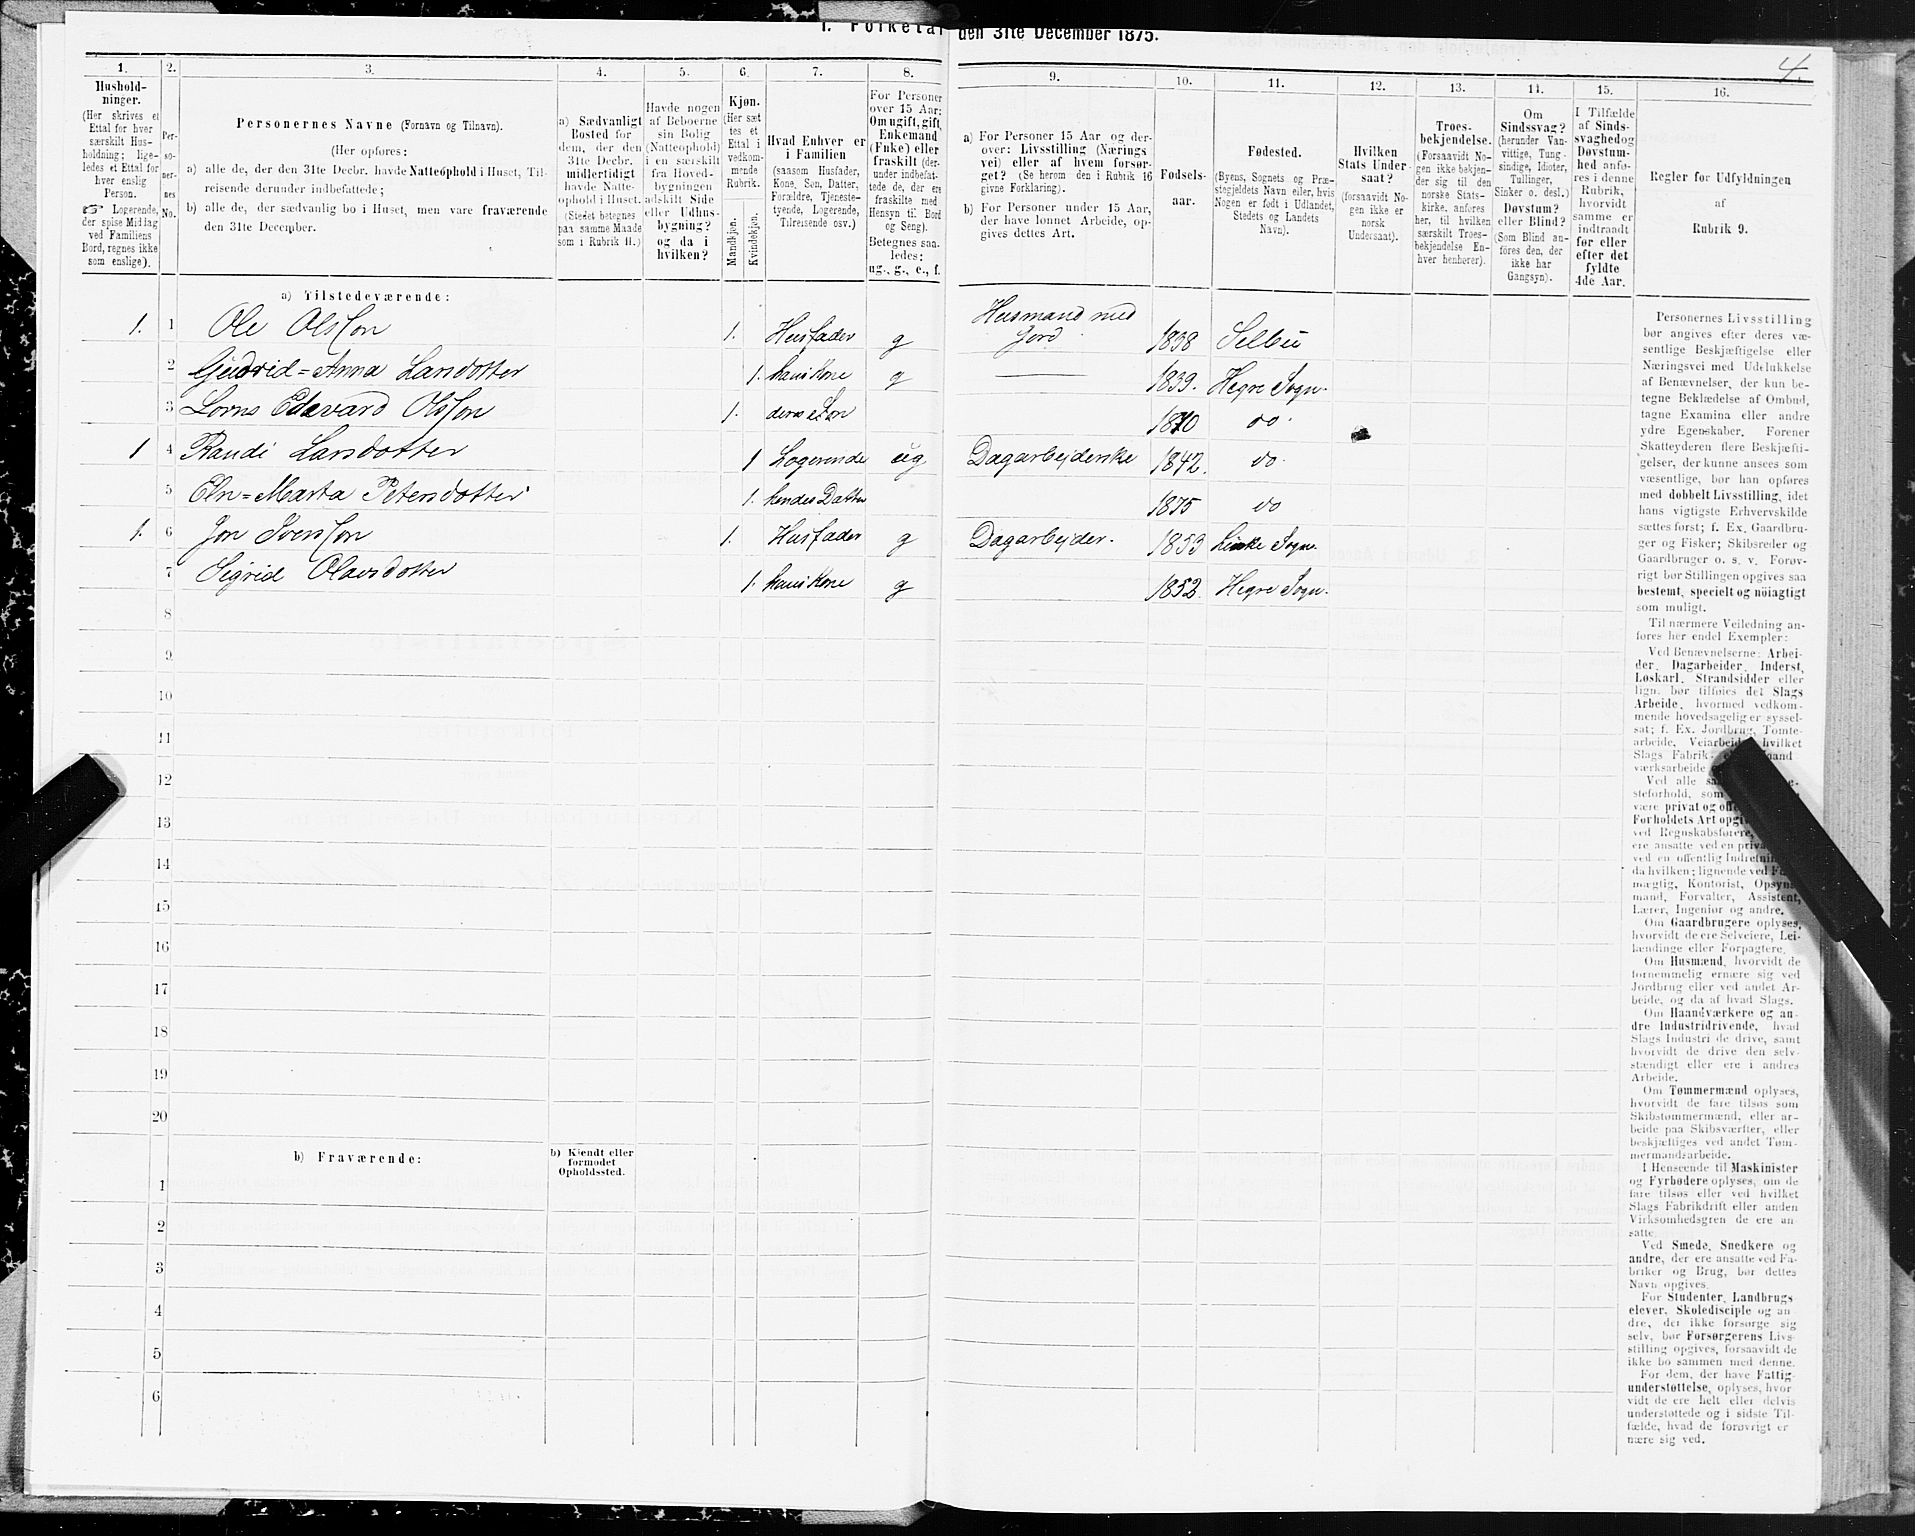 1. Folketal den 31te December 1875.
4.
1. 2. 3. 4. 5. 6. 7. 8. 9. 10. 11. 12. 13. 14. 15. 16.
Hushold-
ninger.
(Her skrives et
Ettal for hver
særskilt Hus-
holdning; lige-
ledes et Ettal for
hver enslig
Person.
Logerende,
der spise Middag
ved Familiens
Bord, regnes ikke
som enslige).
Per-
so-
ner-
nes
No.
Personernes Navne (Fornavn og Tilnavn).
(Her opføres:
a) alle de, der den 31te Decbr. havde Natteophold i Huset, Til-
reisende derunder indbefattede;
b) alle de, der sædvanlig bo i Huset, men vare fraværende
den 31te December.
a) Sædvanligt
Bosted for
dem, der den
31te Decbr.
midlertidigt
havde Natte-
ophold i Huset.
(Stedet betegnes
paa samme Maade
som i Rubrik 11.)
Havde nogen
af Beboerne
sin Bolig
(Natteophold)
i en særskilt
fra Hoved-
bygningen
adskilt Side
eller Udhus-
bygning?
og da i
hvilken?
Kjøn.
(Her sæt
tes et
Ettal i
vedkom-
mende
Rubrik.
Mandkjøn.
Kvindekjøn.
Hvad Enhver er
i Familien
(saasom Husfader,
Kone, Søn, Datter,
Forældre, Tjeneste-
tyende, Logerende,
Tilreisende osv.)
For Personer
over 15 Aar:
Om ugift, gift,
Enkemand
(Enke) eller
fraskilt (der-
under indbefat-
tede de, der ere
fraskilte med
Hensyn til Bord
og Seng).
Betegnes saa-
ledes:
ug., g., e., f.
a) For Personer 15 Aar og der-
over: Livsstilling (Nærings
vei) eller af hvem forsør-
get? (Se herom den i Rubrik 16
givne Forklaring).
b) For Personer under 15 Aar,
der have lønnet Arbeide, op-
gives dettes Art.
Fødsels-
aar.
Fødested.
(Byens, Sognets og Præ-
stegjeldets Navn eller, hvis
Nogen er født i Udlandet,
Stedets og Landets
Navn).
Hvilken
Stats Under-
saat?
(forsaavidt No-
gen ikke er
norsk
Undersaat).
Troes-
bekjendelse.
(Forsaavidt No-
gen ikke bekjen-
der sig til den
norske Stats-
kirke, anføres
her, til hvilken
særskilt Troes-
bekjendelse En-
hver henhører).
Om
Sindssvag?
(herunder Van-
vittige, Tung-
sindige, Idioter,
Tullinger,
Sinker o. desl.)
Døvstum?
eller Blind?
(Som Blind an-
føres den, der
ikke har
Gangsyn).
I Tilfælde
af Sinds-
svaghed og
Døvstum-
hed anfø-
res i denne
Rubrik,
hvorvidt
samme er
indtraadt
før eller
efter det
fyldte
4de Aar.
Regler for Udfyldningen
af
Rubrik 9.
a) Tilstedeværende:
1. 1 Ole Olsson 1. Husfader g Husmand med Jord 1838 Selbu
2 Gudrid=Anna Larsdotter 1. hans Kone g 1839. Hegre Sogn.
3 Lorns Edevard Olsson 1. deres Søn 1870 do.
1 4 Randi Larsdotter 1 Logerende ug Dagarbejderske 1842. do
5 Eln=Marta Petersdotter 1. hendes Datter 1875 do
1. 6 Jon Svensson 1. Husfader g Dagarbejder. 1853 Sogn.
7 Sigrid Olavsdotter 1. hans Kone g 1852. Hegre Sogn.
8
9
10
11
12
13
14
15
16
17
18
19
20
b) Fraværende:
b) Kjendt eller
formodet
Opholdssted.
1
2
3
4
5
6
Personernes Livsstilling
bør angives efter deres væ-
sentlige Beskjæftigelse eller
Næringsvei med Udelukkelse
af Benævnelser, der kun be-
tegne Beklædelse af Ombud,
tagne Examina eller andre
ydre Egenskaber. Forener
Skatteyderen flere Beskjæfti-
gelser, der kunne ansees som
væsentlige, bør han opføres
med dobbelt Livsstilling, idet
hans vigtigste Erhvervskilde
sættes først; f. Ex. Gaardbru-
ger og Fisker; Skibsreder og
Gaardbruger o. s. v. Forøv-
rigt bør Stillingen opgives saa
bestemt, specielt og nöiagtigt
som muligt.
Til nærmere Veiledning an-
føres her endel Exempler:
Ved Benævnelserne: Arbei-
der, Dagarbeider, Inderst,
Løskarl, Strandsidder eller
lign. bør tilføies det Slags
Arbeide, hvormed vedkom-
mende hovedsagelig er syssel-
sat; f. Ex. Jordbrug, Tomte-
arbeide, Veiarbeide, hvilket
Slags Fabrik-
værksarbeide
Ved alle
steforhold, som
være privat og
Forholdets Art
ved Regnskabsførere,
ere ansatte ved en
ved en offentlig
da hvilken; lignende ved
mægtig, Kontorist,
mand, Forvalter, Assistent,
Lærer, Ingeniør og andre.
Om Gaardbrugere oplyses,
hvorvidt de ere Selveiere, Lei-
lændinge eller Forpagtere.
Om Husmænd, hvorvidt de
fornemmelig ernære sig ved
Jordbrug eller ved andet Ar-
beide, og da af hvad Slags.
Om Haandværkere og an-
dre Industridrivende, hvad
Slags Industri de drive, samt
hvorvidt de drive den selv-
stændigt eller ere i andres
Arbeide.
Om Tømmermænd oplyses,
hvorvidt de fare tilsøs som
Skibstømmermænd, eller ar-
beide paa Skibsværfter, eller
beskjæftiges ved andet Tøm-
mermandsarbeide.
I Henseende til Maskinister
og Fyrbødere oplyses, om de
fare tilsøs eller ved hvilket
Slags Fabrikdrift eller anden
Virksomhedsgren de ere an-
satte.
Ved Smede, Snedkere og
andre, der ere ansatte ved Fa-
briker og Brug, bør dettes
Navn opgives.
For Studenter, Landbrugs-
elever, Skoledisciple og an-
dre, der ikke forsørge sig
selv, bør Forsørgerens Livs-
stilling opgives, forsaavidt de
ikke bo sammen med denne.
For dem, der have Fattig-
understøttelse, oplyses, hvor-
vidt de ere helt eller delvis
understøttede og i sidste Til-
fælde, hvad de forøvrigt er-
nære sig ved.